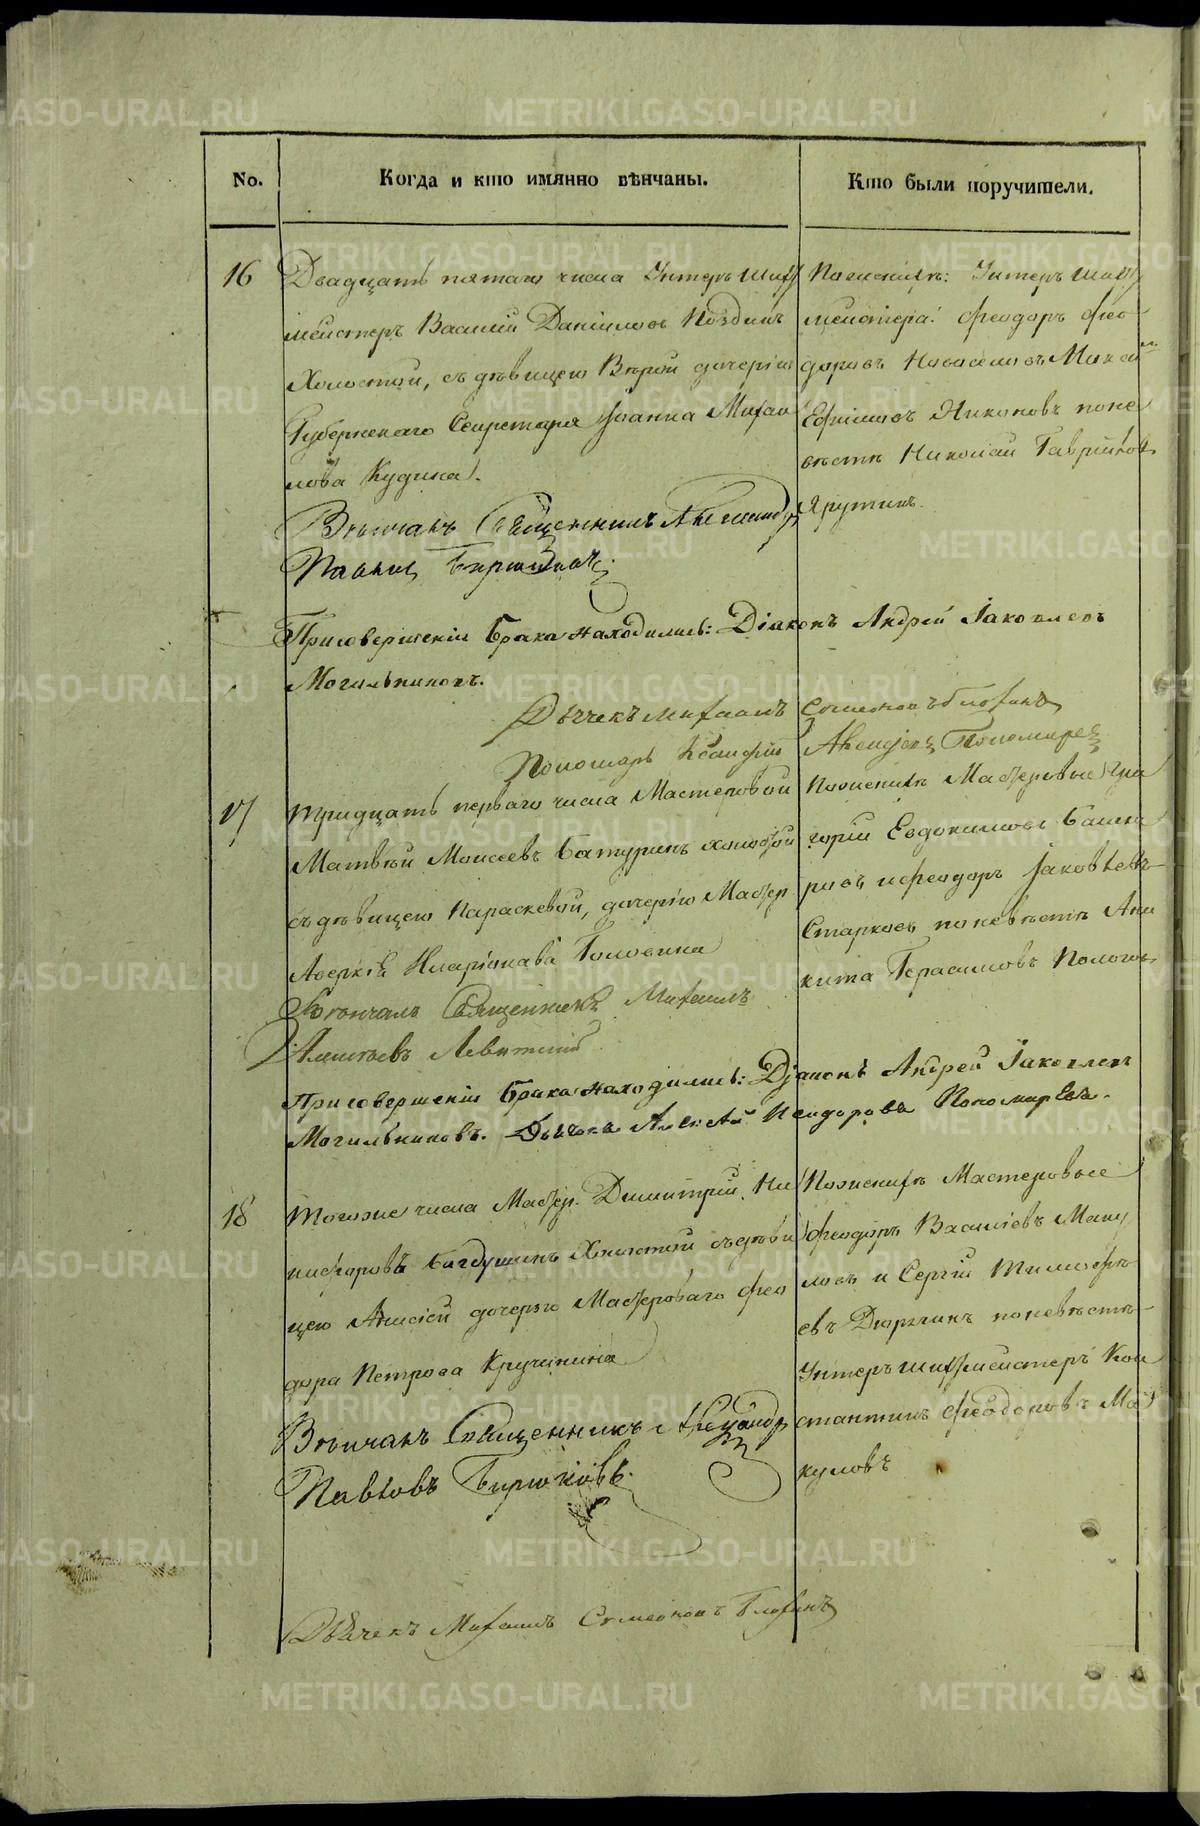 No.
Когда и кто имянно вѣнчаны.
Кто были поручители.
16
Двадцать пятаго числа Унтеръ Шихт
мейстеръ Василій Данииловъ
Холостой, съ дѣвицею Вѣрой дочерію
Губернскаго Секретаря Іоанна Михаи
лова Кудина.
Вѣнчалъ Священникъ Александръ
Павловъ Бирюковъ.
По женихѣ: Унтеръ Шихт
мейстера: Феодоръ Фео
доровъ Новоселовъ
Ефимовъ Никоновъ по не
вѣстѣ Николай Гавриловъ
Ярутинъ.
При совершеніи Брака находились: Діаконъ Андрей Іаковлевъ
Могильниковъ.
Дьячекъ Михаилъ Симеоновъ
Пономарь Алексіевъ Пономаревъ
17
Тридцать перваго числа Мастеровой
Матвѣй Моисеевъ Батуринъ холостой
съ дѣвицею Параскевой, дочерію Мастер.
Аверкія Иларіонава Головина
Вѣнчалъ Священникъ Михаилъ
Алексѣевъ Левитскій
По женихѣ Мастеровые Гри
горій Евдокимовъ Башки
ровъ и Феодоръ Іаковлевъ
Старковъ по невѣстѣ Ани
кита Герасимовъ Пологовъ
При совершеніи Брака находились: Діаконъ Андрей Іаковлевъ
Могильниковъ. Дьячекъ Алексѣй Исидоровъ Пономаревъ.
18
Тогоже числа Мастер. Димитрій Ни
кифоровъ Холостой съ дѣви
цею Анисіей дочерію Мастероваго Фео
дора Петрова Кручинина
Вѣнчалъ Священникъ Александръ
Павловъ Бирюковъ.
По женихѣ Мастеровые
Феодоръ Василіевъ Маку
ловъ и Сергій Тимофѣ
евъ Дюрягинъ по невѣстѣ
Унтеръ шихтмейстеръ Кон
стантинъ Феодоровъ Ма
куловъ
Дьячекъ Михаилъ Симеоновъ
METRIKI.GASO-URAL.RU